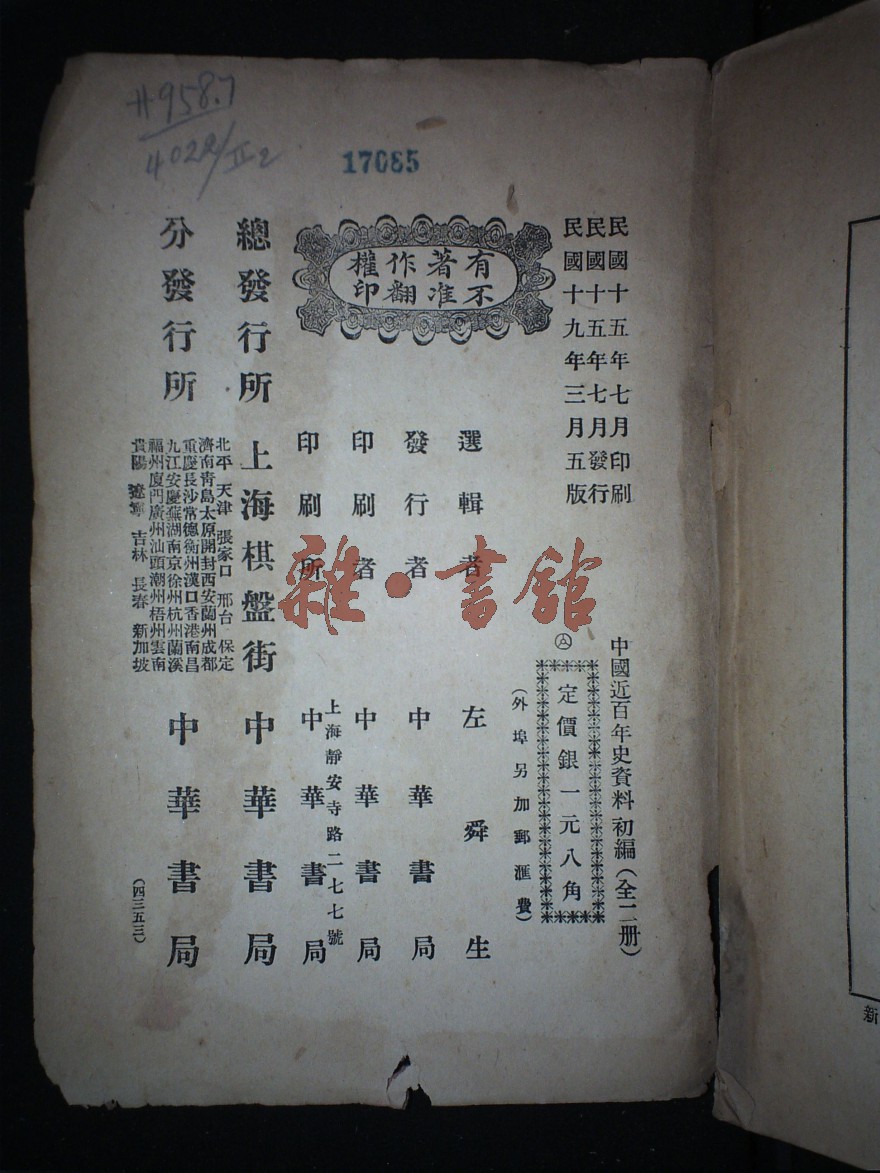 民國十五年七月印刷
民國十五年七月發行
民國十九年三月五版
中國近百年史資料初編(全二册)
定價銀一元八角
(外埠另加郵匯費)
有著作權
不准翻印
選輯者 左舜生
發行者 中華書局
印刷者 中華書局
上海靜安寺路二七七號
印刷所 中華書局
總發行所 上海棋盤街 中華書局
分發行所
北平 天津 張家口 邢台 保定
濟南青島太原開封西安蘭州成都
重慶長沙常德衡州漢口香港南昌
九江安慶蕪湖南京徐州杭州蘭溪
福州廈門廣州汕頭潮州梧州雲南
貴陽 遼寧 吉林 長春 新加坡
中華書局
(四三五三)
17085
958.7
雜·書館
新